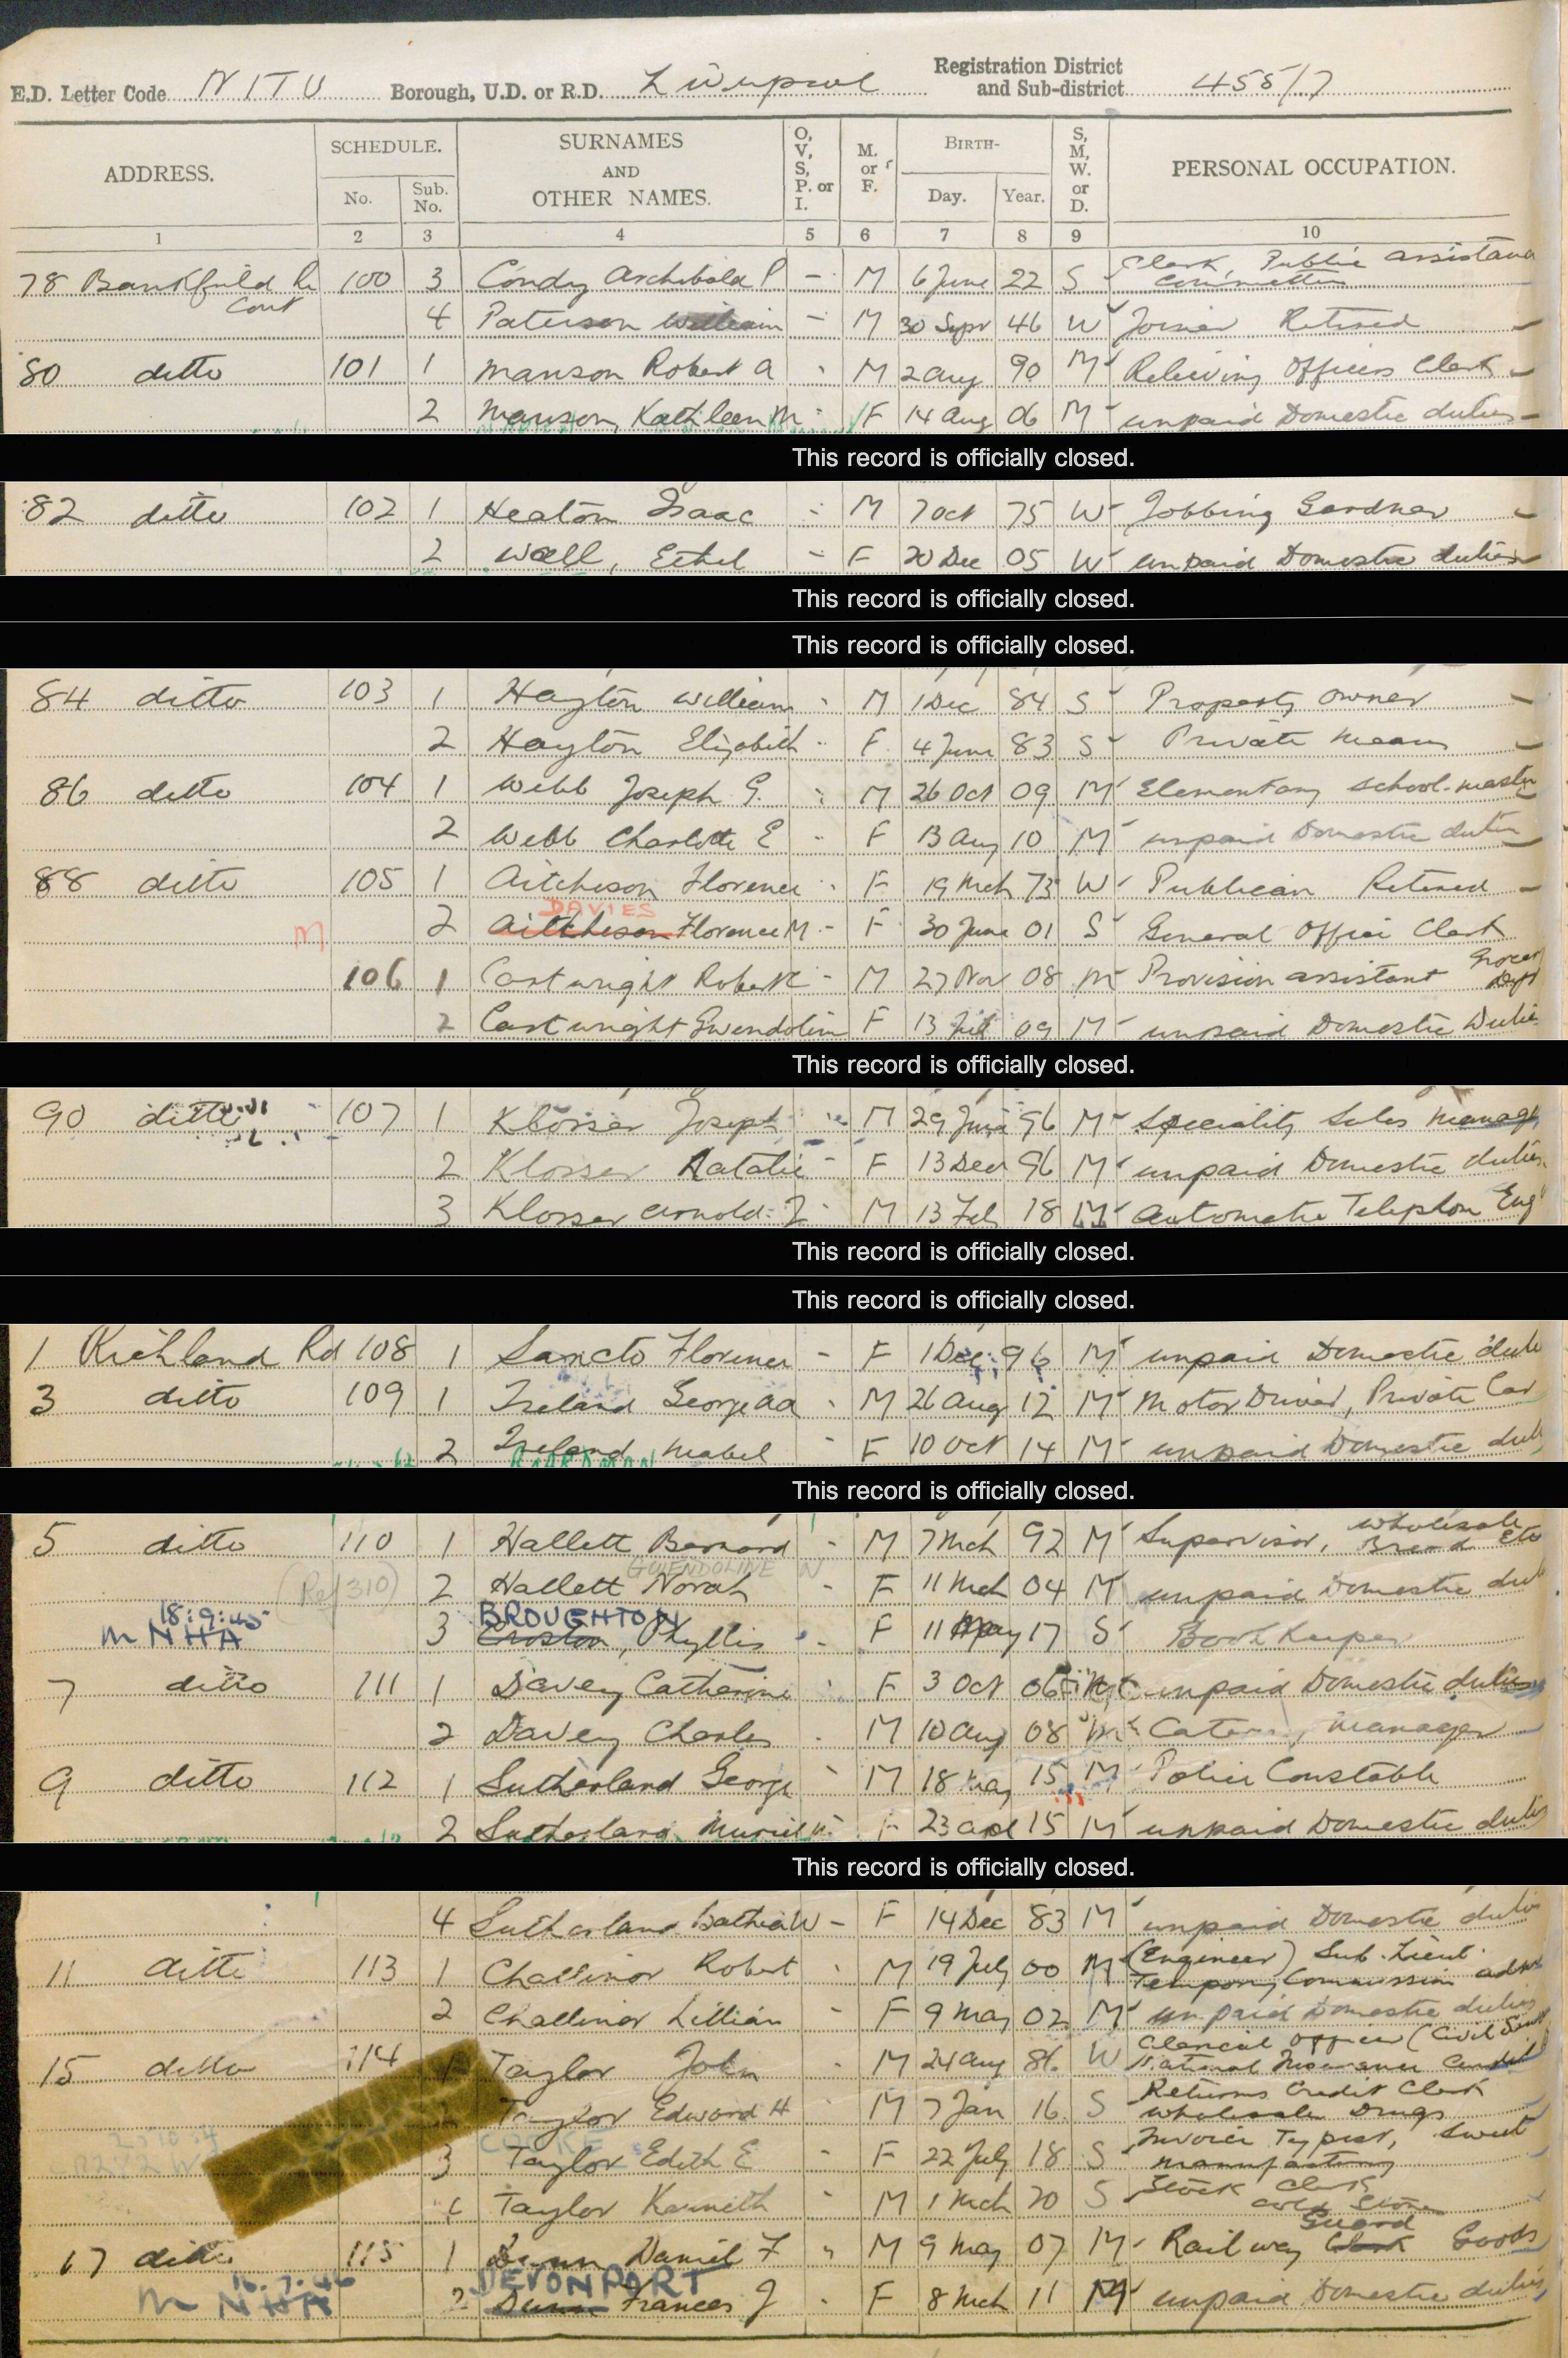 E.D. Letter Code NITU Borough, U.D. or R.D. Liverpool Registration District and Sub-district 455/7
ADDRESS. SCHEDULE. No. Sub. No. SURNAMES AND OTHER NAMES. O, V, S, P. or I. M. or F. BIRTH- Day. Year. S, M, W. or D. PERSONAL OCCUPATION.
1 2 3 4 5 6 7 8 9 10
78 Bankfield Rd Cont 100 3 Condy Archibald P - M 6 June 22 S Clerk, Public Assistance Committee
4 Paterson William - M 30 Sept 46 W Joiner Retired
80 ditto 101 1 Manson Robert A - M 2 Aug 90 M Relieving Officers Clerk
2 Manson, Kathleen M - F 14 Aug 06 M unpaid Domestic duties
This record is officially closed.
82 ditto 102 1 Heaton Isaac - M 7 Oct 75 W Jobbing Gardner
2 Wall, Ethel - F 20 Dec 05 W unpaid Domestic duties
This record is officially closed.
This record is officially closed.
84 ditto 103 1 Hayton William - M 1 Dec 84 S Property Owner
2 Hayton Elizabeth - F 4 June 83 S Private Means
86 ditto 104 1 Webb Joseph G. - M 26 Oct 09 M Elementary School-master
2 Webb Charlotte E - F 13 Aug 10 M unpaid Domestic duties
88 ditto 105 1 Aitcheson Florence - F 19 Mch 73 W Publican Retired
DAVIES
M 2 Aitcheson Florence M - F 30 June 01 S General Office Clerk
106 1 Cartwright Robert - M 27 Nov 08 M Provision assistant Grocery Dept
2 Cartwright Gwendoline F 13 09 M unpaid Domestic Duties
This record is officially closed.
90 ditto 107 1 Klosser Joseph - M 29 96 M Speciality Sales Manager
2 Klosser Natalie - F 13 Dec 96 M unpaid Domestic duties
3 Klosser Arnold J - M 13 Feb 18 M Automatic Telephone Eng
This record is officially closed.
This record is officially closed.
1 Richland Rd 108 1 Sancto Florence - F 1 Dec 96 M unpaid Domestic duties
3 ditto 109 1 Ireland George - M 26 Aug 12 M Motor Driver, Private Car
2 Ireland Mabel - F 10 Oct 14 M unpaid Domestic duties
This record is officially closed.
5 ditto 110 1 Hallett Bernard - M 7 Mch 92 M Supervisor, Wholesale Bread Etc
GWENDOLINE N
(Ref 310) 2 Hallett Norah - F 11 Mch 04 M unpaid Domestic duties
18:9:45 BROUGHTON
M NHA 3 Croston, Phyllis - F 11 May 17 S Bookkeeper
7 ditto 111 1 Davey Catherine - F 3 Oct 06 M unpaid Domestic duties
2 Davey Charles - M 10 Aug 08 M Manager
9 ditto 112 1 Sutherland George - M 18 May 15 M Police Constable
2 Sutherland Muriel - F 23 Apl 15 M unpaid Domestic duties
This record is officially closed.
4 Sutherland Bathia W - F 14 Dec 83 M unpaid Domestic duties
11 ditto 113 1 Challinor Robert - M 19 July 00 M (Engineer) Sub. Lieut. Tempory Commission
2 Challinor Lillian - F 9 May 02 M unpaid Domestic duties
15 ditto 114 1 Taylor John - M 24 Aug 86 W Clerical Officer (Civil Service) National Insurance
2 Taylor Edward H - M 7 Jan 16 S Returns Credit Clerk Wholesale Drugs
COOKE
3 Taylor Edith E - F 22 July 18 S Invoice Typist, Sweet Manufactory
4 Taylor Kenneth - M 1 Mch 20 S Stock Clerk Cold Store
17 ditto 115 1 Dunn Daniel F - M 9 May 07 M Railway Clerk Guard Goods
16.7.46 DEVONPORT
M NHA 2 Dunn Frances J - F 8 Mch 11 M unpaid Domestic duties